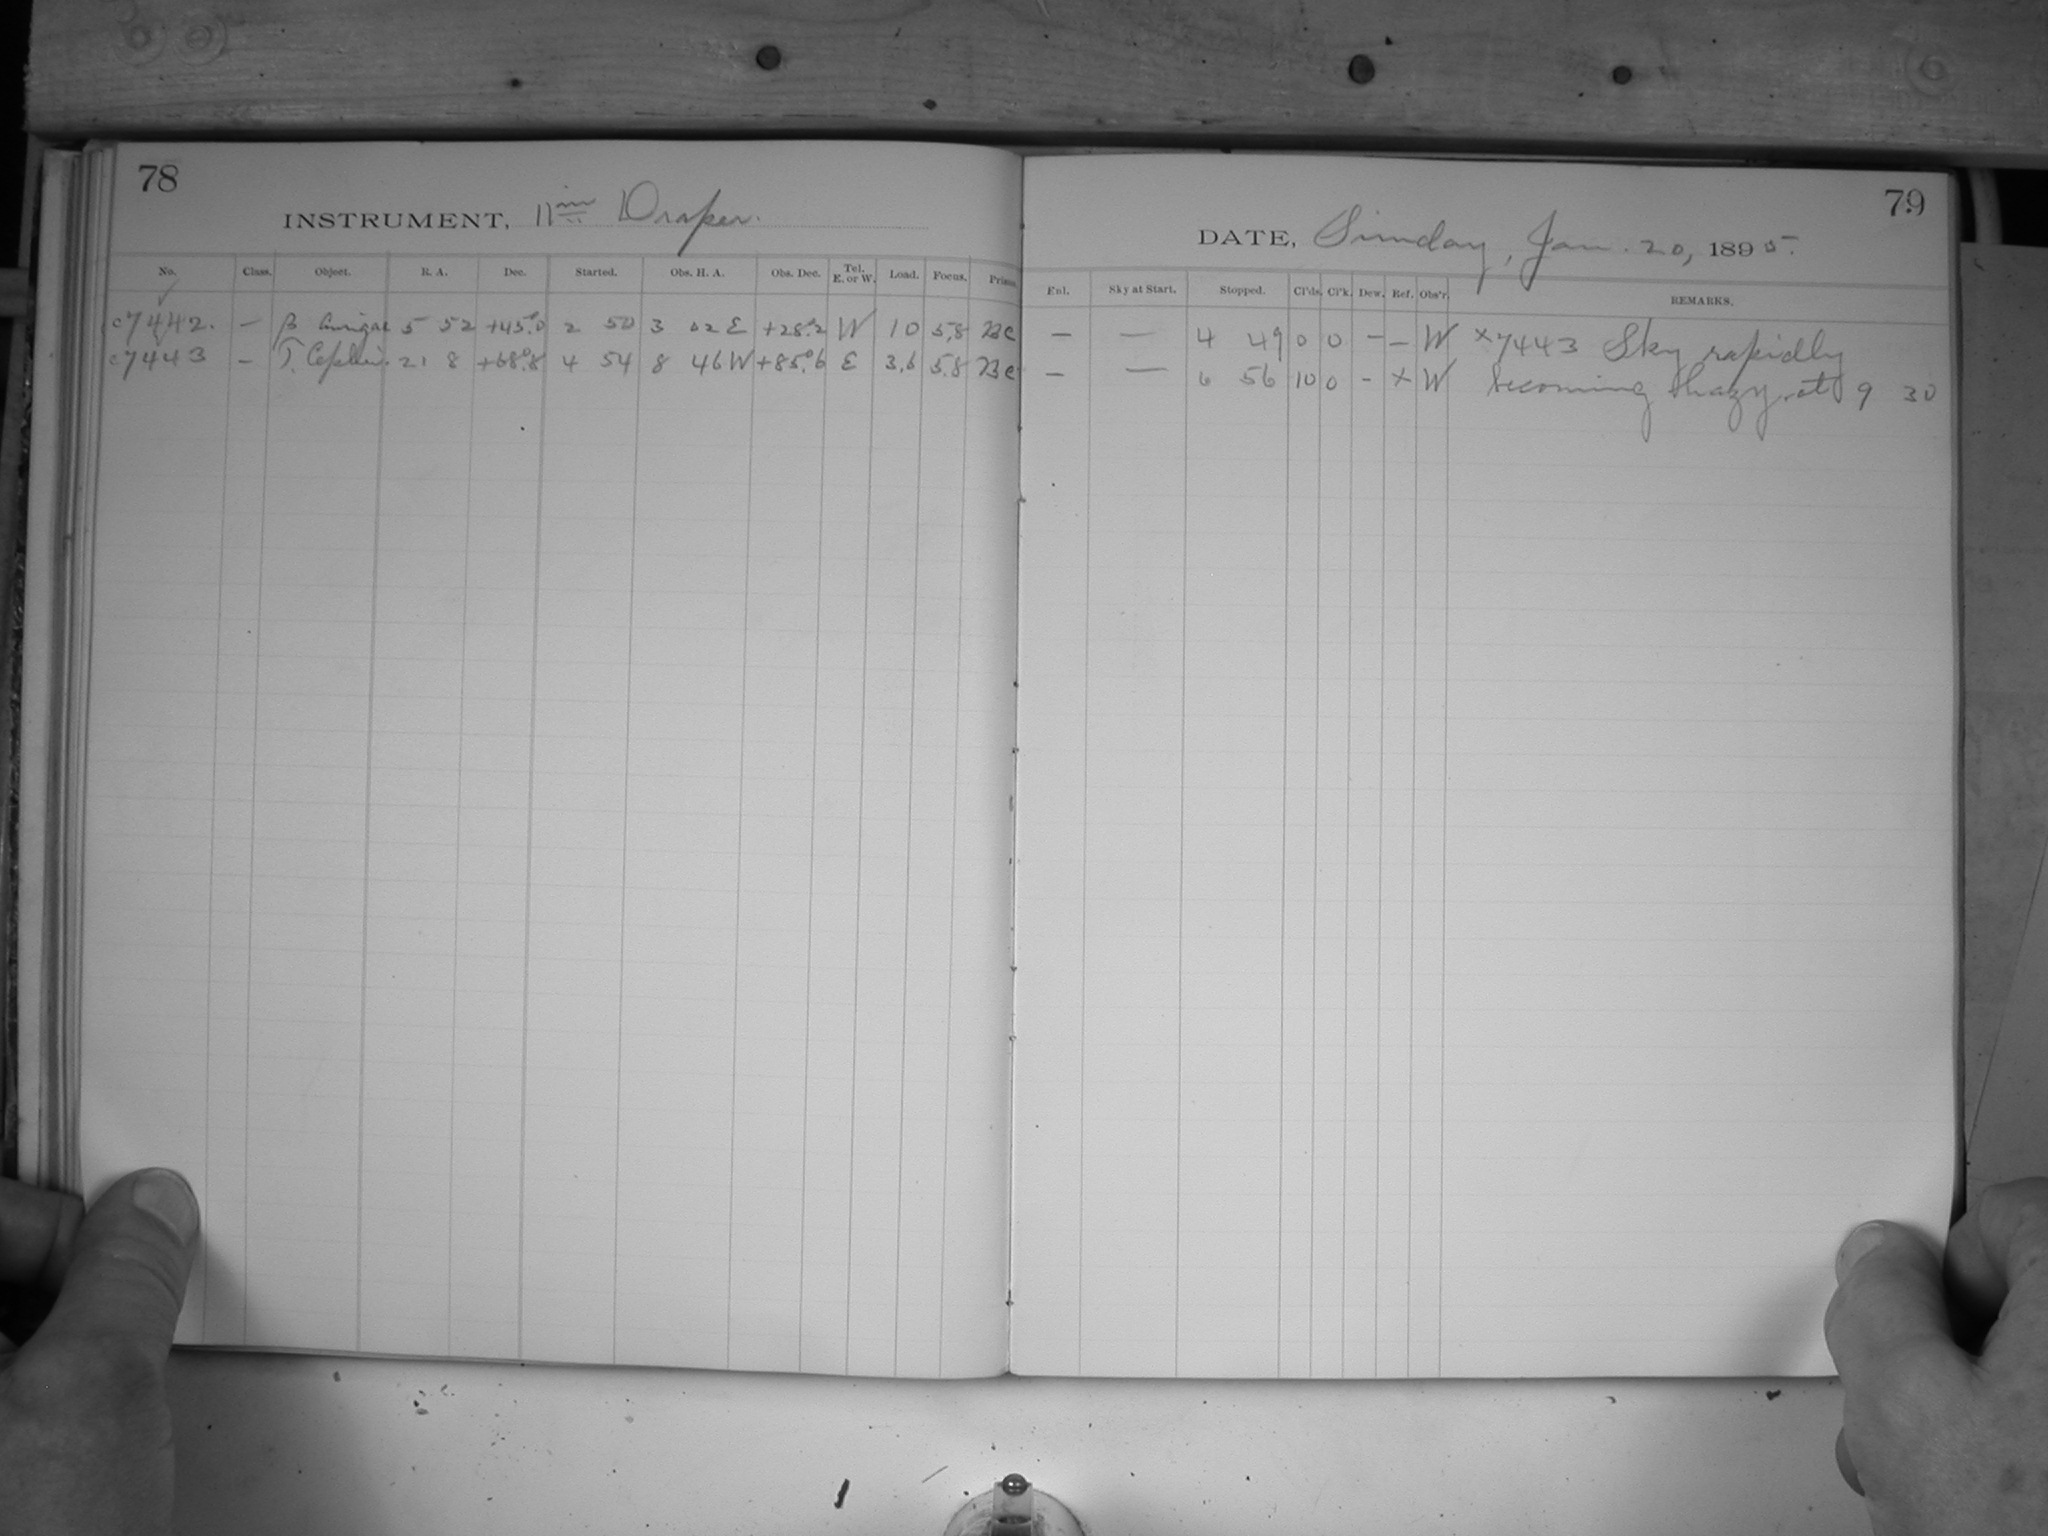 78
INSTRUMENT, 11 in Draper.
No. Class. Object. R. A. Dec. Started. Obs. H. A. Obs. Dec. Tel. E. or W. Load. Focus. Prism.
c7442. — β Aurigae 5 52 +45.°0 2 50 3 02 E +28.°2 W 10 5.8 Bc
c7443 — T. Cephei. 21 8 +68.°8 4 54 8 46 W +85.°6 E 3.6 5.8 Bc
79
DATE, Sunday, Jan. 20, 1895.
Enl. Sky at Start. Stopped. Cl'ds. Cl'k. Dew. Ref. Obs'r. REMARKS.
— — 4 49 0 0 — — W ×7443 Sky rapidly
— — 6 56 10 0 - × W becoming hazy at 9 30